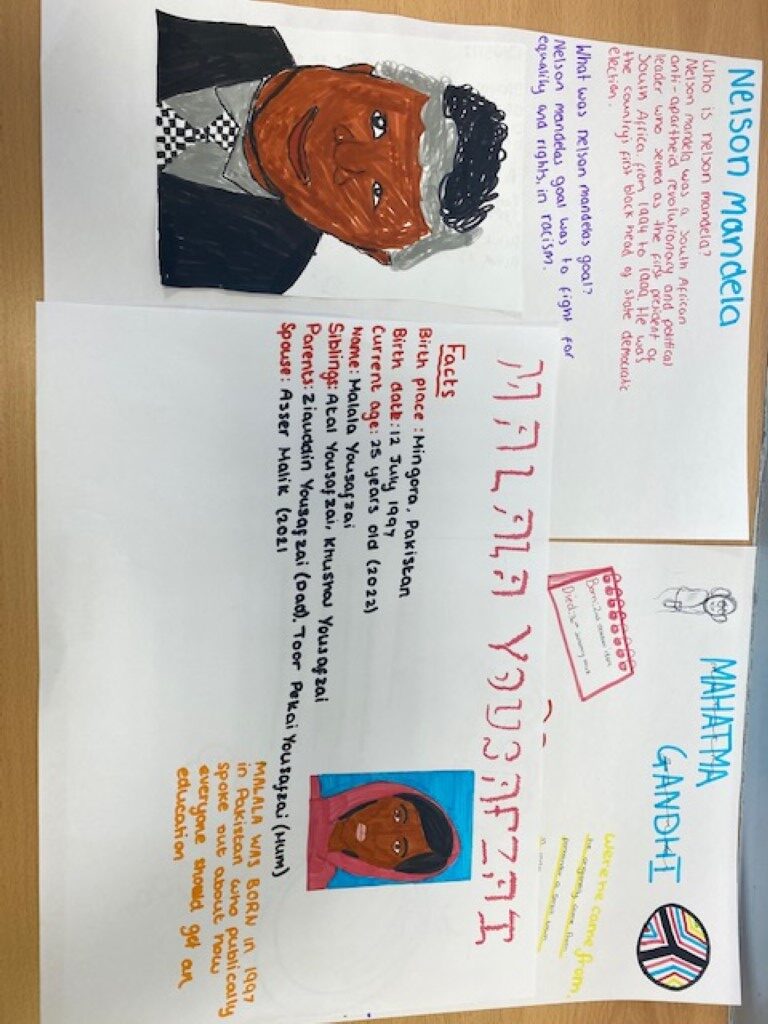 Nelson Mandela
Who is nelson mandela?
Nelson mandela was a South African
anti-apartheid revolutionary and political
leader who served as the first president of
South Africa from 1994 to 1999. He was
the country's first black head of state democratic
election.
What was nelson mandelas goal?
Nelson mandelas goal was to fight for
equality and rights, in racism.
MALALA YOUSAFZAI
Facts
Birth place: Mingora, Pakistan
Birth date: 12 July 1997
Current age: 25 years old (2022)
Name: Malala Yousafzai
Siblings: Atal Yousafzai, Khushal Yousafzai
Parents: Ziauddin Yousafzai (Dad), Toor Pekai Yousafzai (Mum)
Spouse: Asser Malik (2021
MALALA WAS BORN in 1997
in Pakistan who publically
spoke out about how
everyone should get an
education
MAHATMA
GANDHI
Born: 2nd october
Died: 30th january
were he came from.